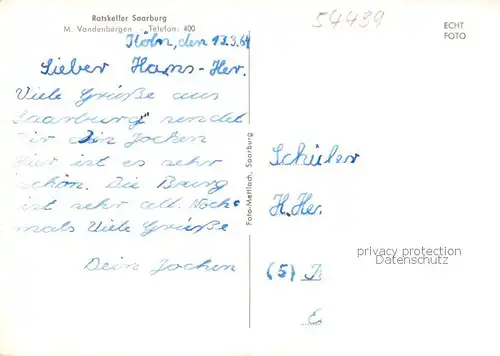 Ratskeller Saarburg
M. Vandenbergen Telefon: 400
54439
ECHT
FOTO
Köln, den 13.3.64
Lieber Hans-Her.
Viele Grüße aus
"Saarburg" sendet
Dir Dein Jochen
Hier ist es sehr
schön. Die Burg
ist sehr alt. Noch-
mals Viele Grüße
Dein Jochen
Foto-Mettlach, Saarburg
Schüler
H. Her
(5)
privacy protection
Datenschutz